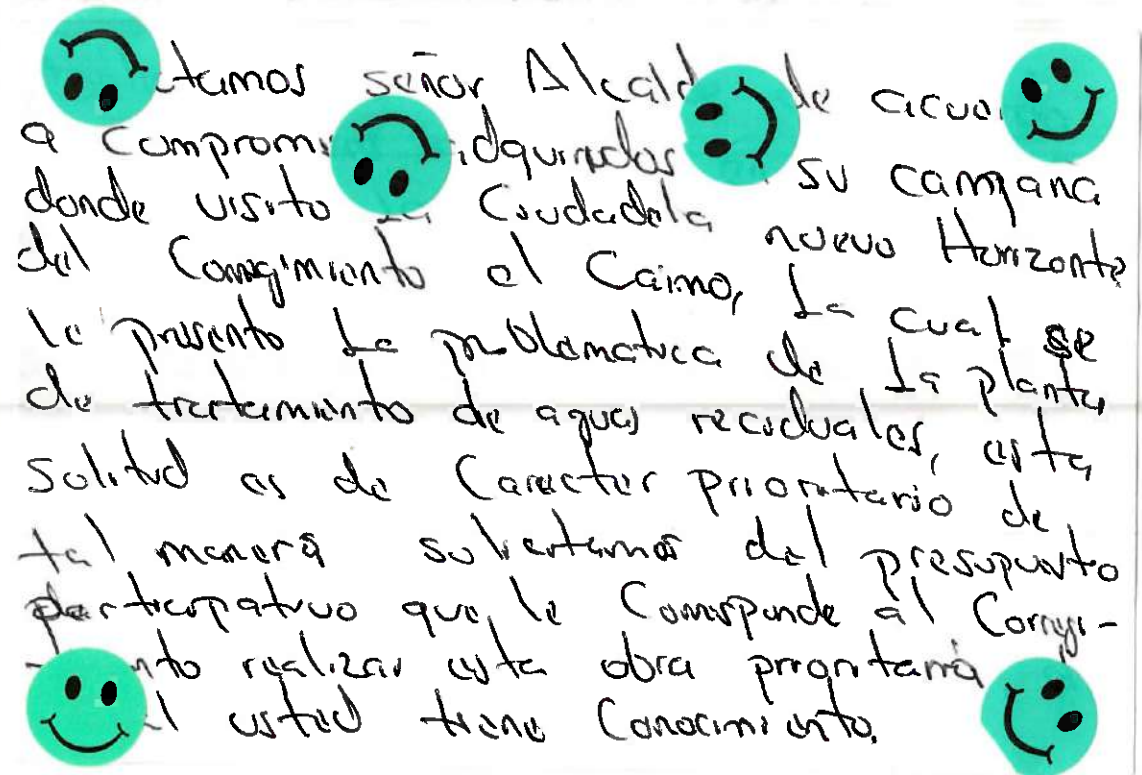 señor de
a su campana
donde visito Ciudadela nuevo Horizonte
del Corregimiento el Caimo, La cual se
le presento La problematica de La planta
de tratamiento de aguas reciduales, esta
Solitud es de Caracter prioritario de
tal manera solicitamos del presupuesto
participativo que le Corresponde al Corregi-
realizar esta obra prioritaria
usted tiene Conocimiento.